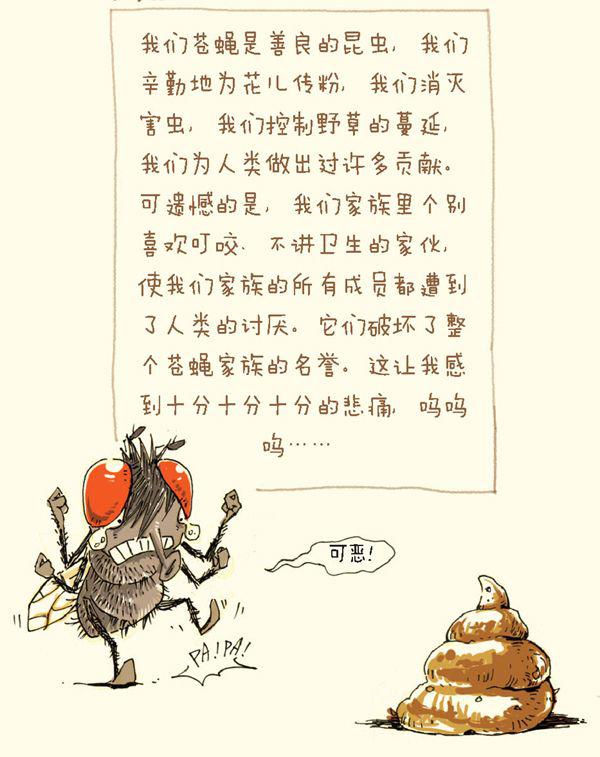 我们苍蝇是善良的昆虫，我们
辛勤地为花儿传粉，我们消灭
害虫，我们控制野草的蔓延，
我们为人类做出过许多贡献。
可遗憾的是，我们家族里个别
喜欢叮咬、不讲卫生的家伙，
使我们家族的所有成员都遭到
了人类的讨厌。它们破坏了整
个苍蝇家族的名誉。这让我感
到十分十分十分的悲痛，呜呜
呜……
可恶！
PA！PA！